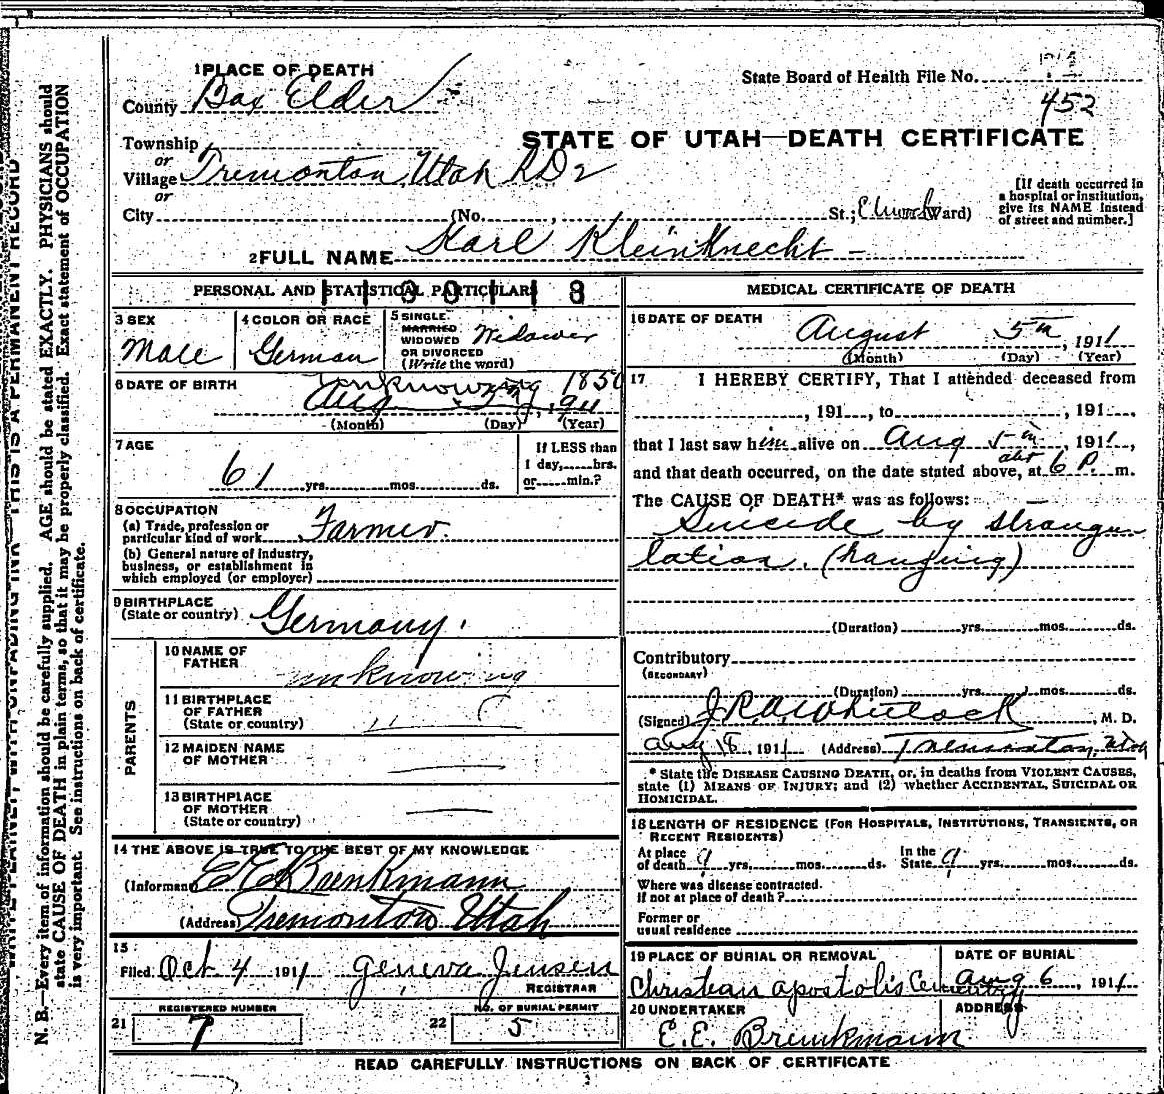 1 PLACE OF DEATH
County Box Elder
State Board of Health File No.
452
STATE OF UTAH—DEATH CERTIFICATE
Township
or
Village Tremonton, Utah RD 2
or
City (No. , St.; Church Ward)
[If death occurred in
a hospital or institution,
give its NAME instead
of street and number.]
2 FULL NAME Karl Kleinknecht
PERSONAL AND STATISTICAL PARTICULARS
3 SEX
Male
4 COLOR OR RACE
German
5 SINGLE
MARRIED
WIDOWED
OR DIVORCED
(Write the word)
Widower
6 DATE OF BIRTH
unknowing 1850
Aug 1911
(Month) (Day) (Year)
7 AGE
61 yrs. mos. ds.
If LESS than
1 day, hrs.
or min.?
8 OCCUPATION
(a) Trade, profession or
particular kind of work Farmer.
(b) General nature of industry,
business, or establishment in
which employed (or employer)
9 BIRTHPLACE
(State or country) Germany.
PARENTS
10 NAME OF
FATHER
unknowing
11 BIRTHPLACE
OF FATHER
(State or country)
12 MAIDEN NAME
OF MOTHER
13 BIRTHPLACE
OF MOTHER
(State or country)
14 THE ABOVE IS TRUE TO THE BEST OF MY KNOWLEDGE
(Informant E E Brenkmann
(Address) Tremonton Utah
15
Filed Oct 4 1911 Geneva Jensen
REGISTRAR
REGISTERED NUMBER
21 7
NO. OF BURIAL PERMIT
22 5
MEDICAL CERTIFICATE OF DEATH
16 DATE OF DEATH
August 5th, 1911
(Month) (Day) (Year)
17 I HEREBY CERTIFY, That I attended deceased from
, 191 , to , 191 ,
that I last saw him alive on Aug 5th, 1911,
and that death occurred, on the date stated above, at abt 6 P. m.
The CAUSE OF DEATH* was as follows:
Suicide by strangu
lation. (hanging)
(Duration) yrs. mos. ds.
Contributory
(SECONDARY)
(Duration) yrs. mos. ds.
(Signed) Whitlock, M. D.
Aug 18, 1911 (Address) Tremonton, Utah
* State the DISEASE CAUSING DEATH, or, in deaths from VIOLENT CAUSES,
state (1) MEANS OF INJURY; and (2) whether ACCIDENTAL, SUICIDAL OR
HOMICIDAL.
18 LENGTH OF RESIDENCE (FOR HOSPITALS, INSTITUTIONS, TRANSIENTS, OR
RECENT RESIDENTS)
At place
of death 9 yrs. mos. ds. In the
State 9 yrs. mos. ds.
Where was disease contracted.
If not at place of death?
Former or
usual residence
19 PLACE OF BURIAL OR REMOVAL
Christian apostolis Cemetery
DATE OF BURIAL
Aug 6, 1911
20 UNDERTAKER
E.E. Brenkmann
ADDRESS
READ CAREFULLY INSTRUCTIONS ON BACK OF CERTIFICATE
N. B.—Every item of information should be carefully supplied. AGE should be stated EXACTLY. PHYSICIANS should
state CAUSE OF DEATH in plain terms, so that it may be properly classified. Exact statement of OCCUPATION
is very important. See instructions on back of certificate.